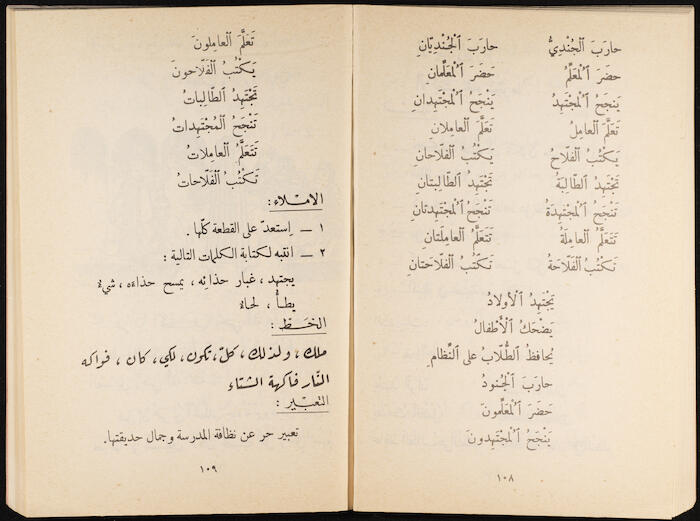 حارَبَ ٱلْجُنْدِيُّ حارَبَ ٱلْجُنْدِيّانِ
حَضَرَ ٱلْمُعَلِّمُ حَضَرَ ٱلْمُعَلِّمانِ
يَنْجَحُ ٱلْمُجْتَهِدُ يَنْجَحُ ٱلْمُجْتَهِدانِ
تَعَلَّمَ ٱلْعامِلُ تَعَلَّمَ ٱلْعامِلانِ
يَكْتُبُ ٱلْفَلّاحُ يَكْتُبُ ٱلْفَلّاحانِ
تَجْتَهِدُ ٱلطّالِبَةُ تَجْتَهِدُ ٱلطّالِبَتانِ
تَنْجَحُ ٱلْمُجْتَهِدَةُ تَنْجَحُ ٱلْمُجْتَهِدَتانِ
تَتَعَلَّمُ ٱلْعامِلَةُ تَتَعَلَّمُ ٱلْعامِلَتانِ
تَكْتُبُ ٱلْفَلّاحَةُ تَكْتُبُ ٱلْفَلّاحَتانِ
يَجْتَهِدُ ٱلْأَوْلادُ
يَضْحَكُ ٱلْأَطْفالُ
يُحافِظُ ٱلطُّلّابُ عَلى ٱلنِّظامِ
حارَبَ ٱلْجُنودُ
حَضَرَ ٱلْمُعَلِّمونَ
يَنْجَحُ ٱلْمُجْتَهِدونَ
١٠٨
تَعَلَّمَ ٱلْعامِلونَ
يَكْتُبُ ٱلْفَلّاحونَ
تَجْتَهِدُ ٱلطّالِباتُ
تَنْجَحُ ٱلْمُجْتَهِداتُ
تَتَعَلَّمُ ٱلْعامِلاتُ
تَكْتُبُ ٱلْفَلّاحاتُ
الاملاء :
١ ــ اِستعدّ على القطعة كلّها .
٢ ــ انتبه لكتابة الكلمات التالية :
يجتهد ، غبار حذائه ، يمسح حذاءه ، شيءٌ
يطأُ ، لحاءٌ
الخطّ :
ملك ، ولذلك ، كلّ ، تكون ، لكي ، كان ، فواكه
النّار فاكهة الشتاء
التعبير :
تعبير حر عن نظافة المدرسة وجمال حديقتها .
١٠٩